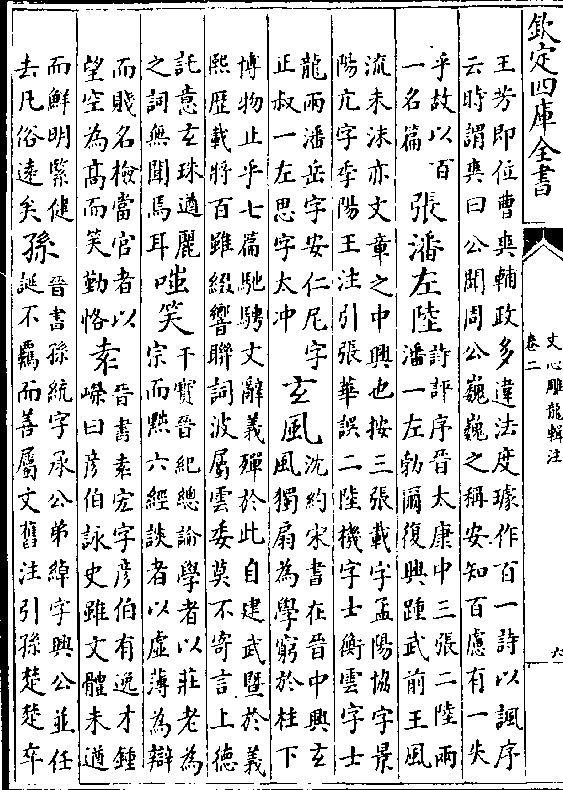 欽定四庫全書
文心雕龍輯注
卷二
六
王芳即位曹爽輔政多違法度璩作百一詩以諷序
云時謂爽曰公聞周公巍巍之稱安知百慮有一失
乎故以百
一名篇
張潘左陸
詩評序晉太康中三張二陸兩
潘一左勃爾復興踵武前王風
流未沫亦文章之中興也按三張載字孟陽協字景
陽亢字季陽王注引張華誤二陸機字士衡雲字士
龍兩潘岳字安仁尼字
正叔一左思字太冲
玄風
沈約宋書在晉中興玄
風獨扇為學窮於柱下
博物止乎七篇馳騁文辭義殫於此自建武暨於義
熙歷載將百雖綴響聯詞波屬雲委莫不寄言上德
託意玄珠遒麗
之詞無聞焉耳
嗤笑
干寶晉紀總論學者以莊老為
宗而黜六經談者以虛薄為辯
而賤名檢當官者以
望空為髙而笑勤恪
袁
晉書袁宏字彦伯有逸才鍾
嶸曰彦伯詠史雖文體未遒
而鮮明緊健
去凡俗逺矣
孫
晉書孫統字承公弟綽字興公並任
誕不羈而善屬文舊注引孫楚楚卒